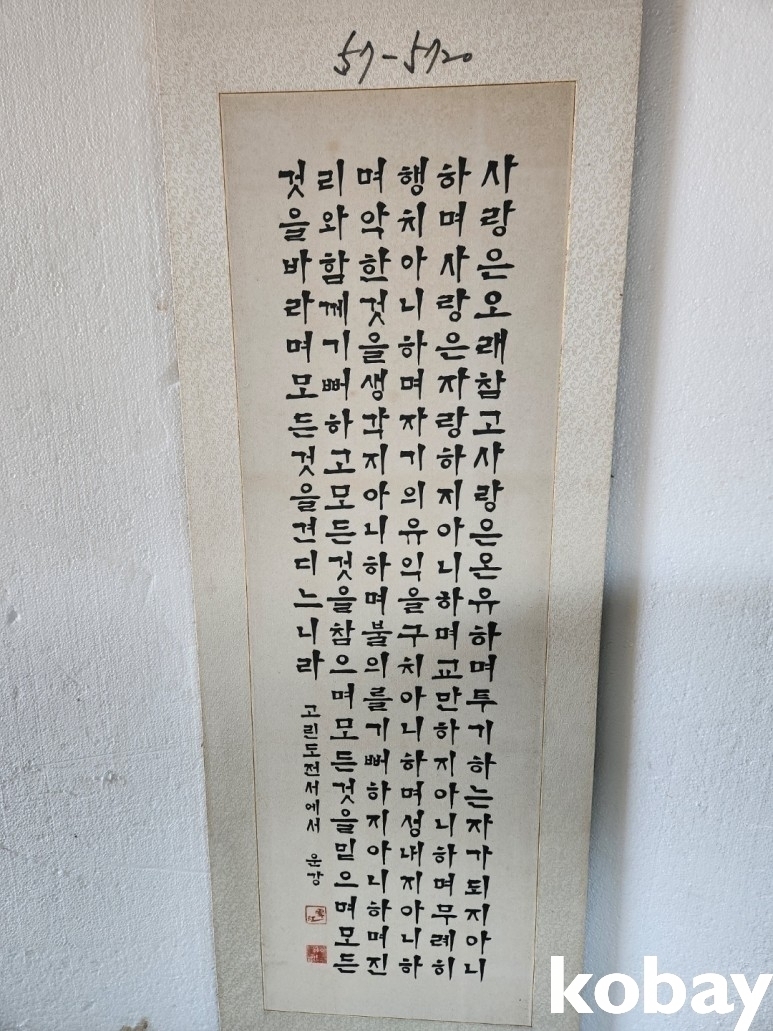 57-5720
사랑은오래참고사랑은온유하며투기하는자가되지아니
하며사랑은자랑하지아니하며교만하지아니하며무례히
행치아니하며자기의유익을구치아니하며성내지아니하
며악한것을생각지아니하며불의를기뻐하지아니하며진
리와함께기뻐하고모든것을참으며모든것을믿으며모든
것을바라며모든것을견디느니라
고린도전서에서 운강
kobay